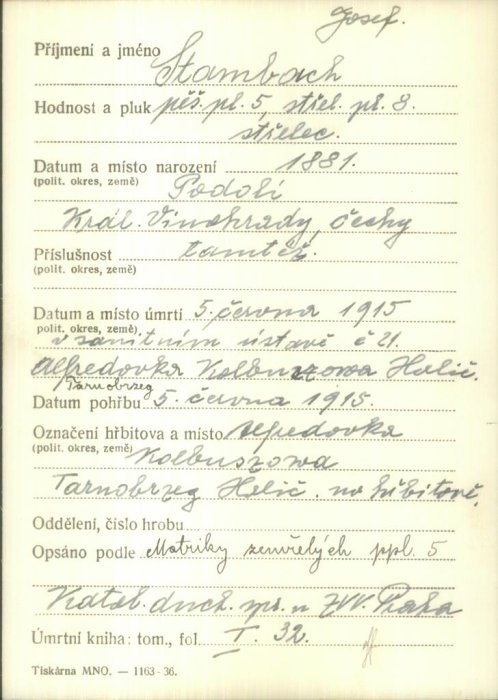 Josef.
Příjmení a jméno Stambach
Hodnost a pluk pěš. pl. 5, střel. pl. 8.
střelec.
Datum a místo narození 1881.
(polit. okres, země) Podolí
Král. Vinohrady, Čechy
Příslušnost tamtéž.
(polit. okres, země)
Datum a místo úmrtí 5. června 1915
polit. okres, země) v sanitním ústavě č 21.
Alfredovka Kolbuszowa Halič.
Tarnobrzeg
Datum pohřbu 5. června 1915.
Označení hřbitova a místo Alfredovka
(polit. okres, země) Kolbuszowa
Tarnobrzeg Halič. na hřbitově.
Oddělení, číslo hrobu
Opsáno podle Matriky zemřelých ppl. 5
Katol. duch. spr. u ZVV. Praha
Úmrtní kniha: tom., fol. I. 32.
Tiskárna MNO. — 1163-36.